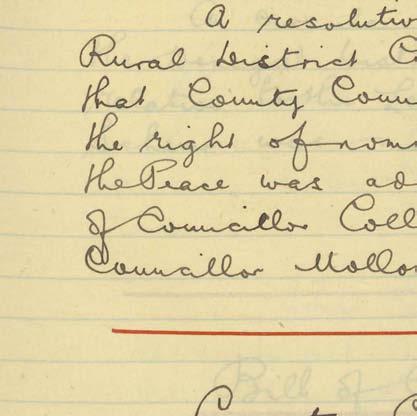 A resolution
Rural District C
that County Coun
the right of nom
the Peace was ad
of Councillor Coll
Councillor Mollo
Bill of